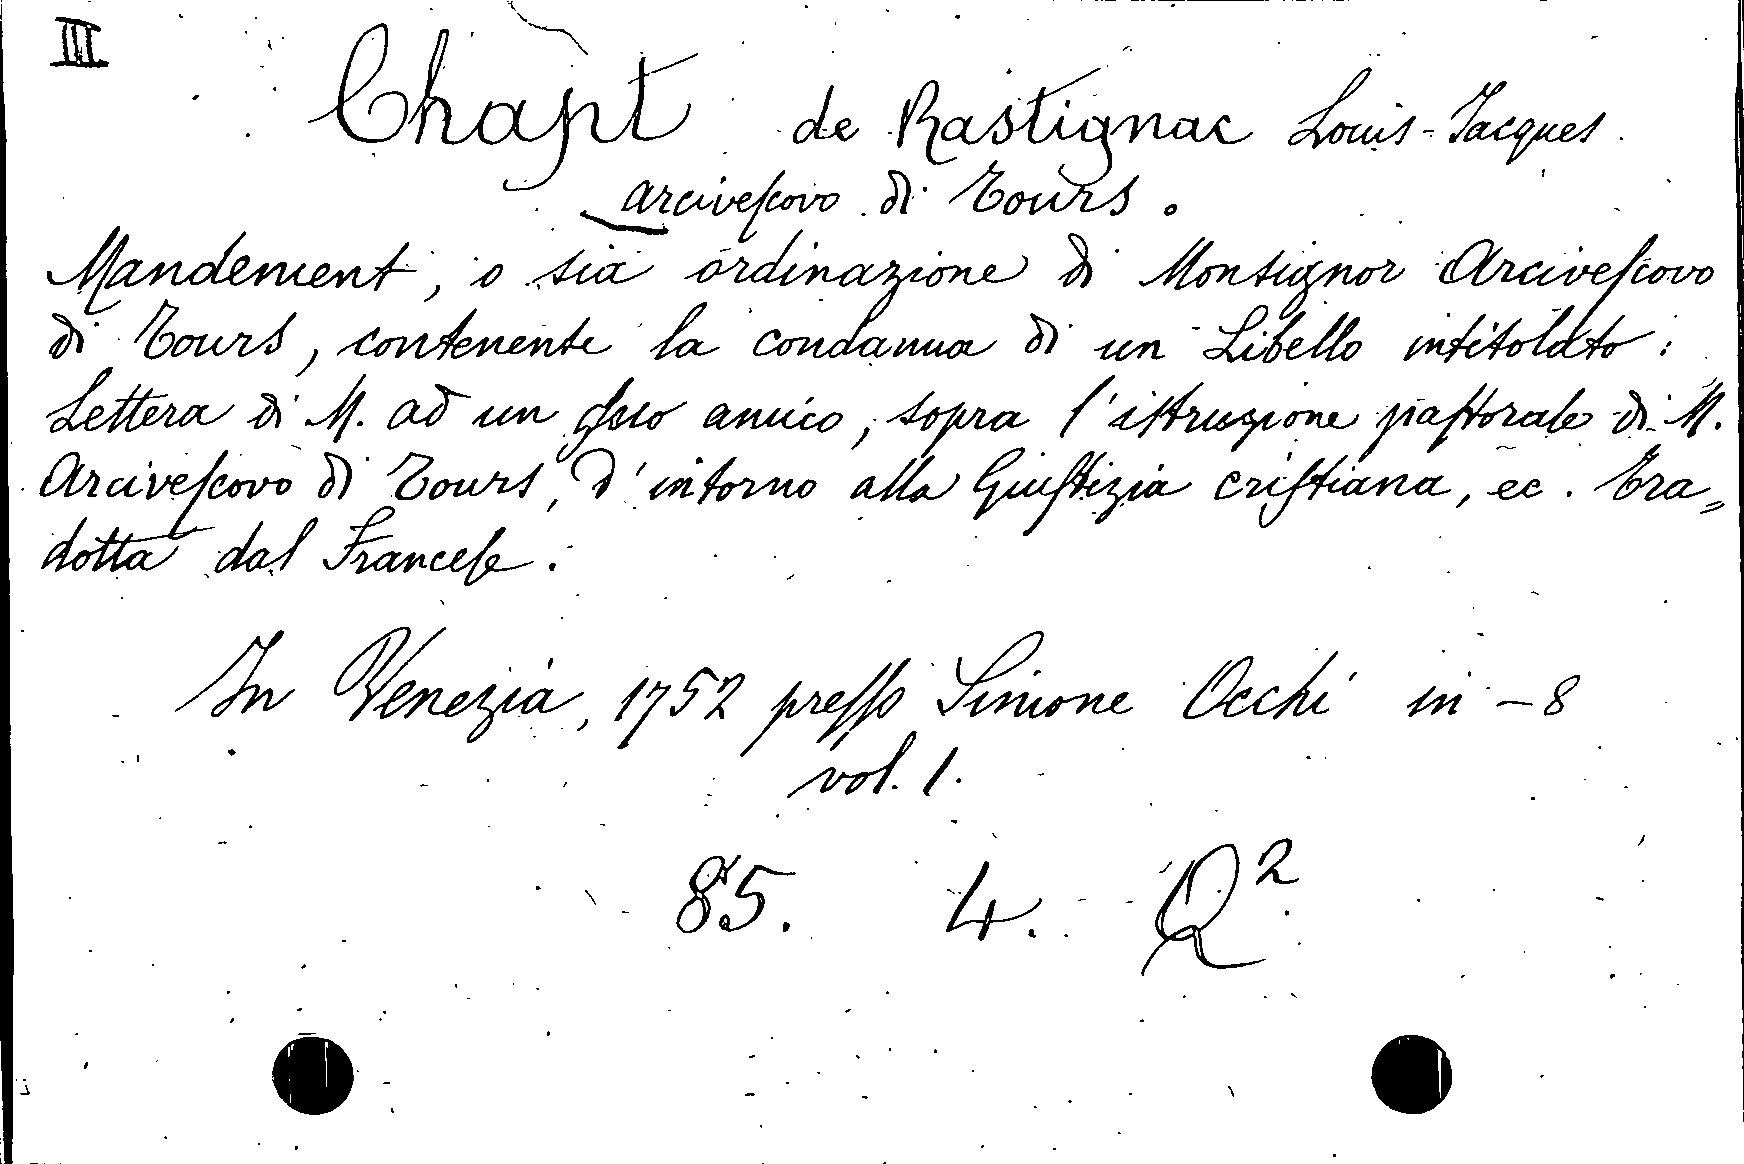 III
Chapt de Rastignac Louis-Jacques
arcivescovo di Tours.
Mandement, o sia ordinazione di Monsignor Arcivescovo
di Tours, contenente la condanna di un Libello intitolato:
Lettera di M. ad un suo amico, sopra l'istruzione pastorale di M.
Arcivescovo di Tours, d'intorno alla Giustizia cristiana, ec. Tra=
dotta dal Francese.
In Venezia, 1752 presso Simone Occhi in-8
vol. 1.
85. 4. Q²